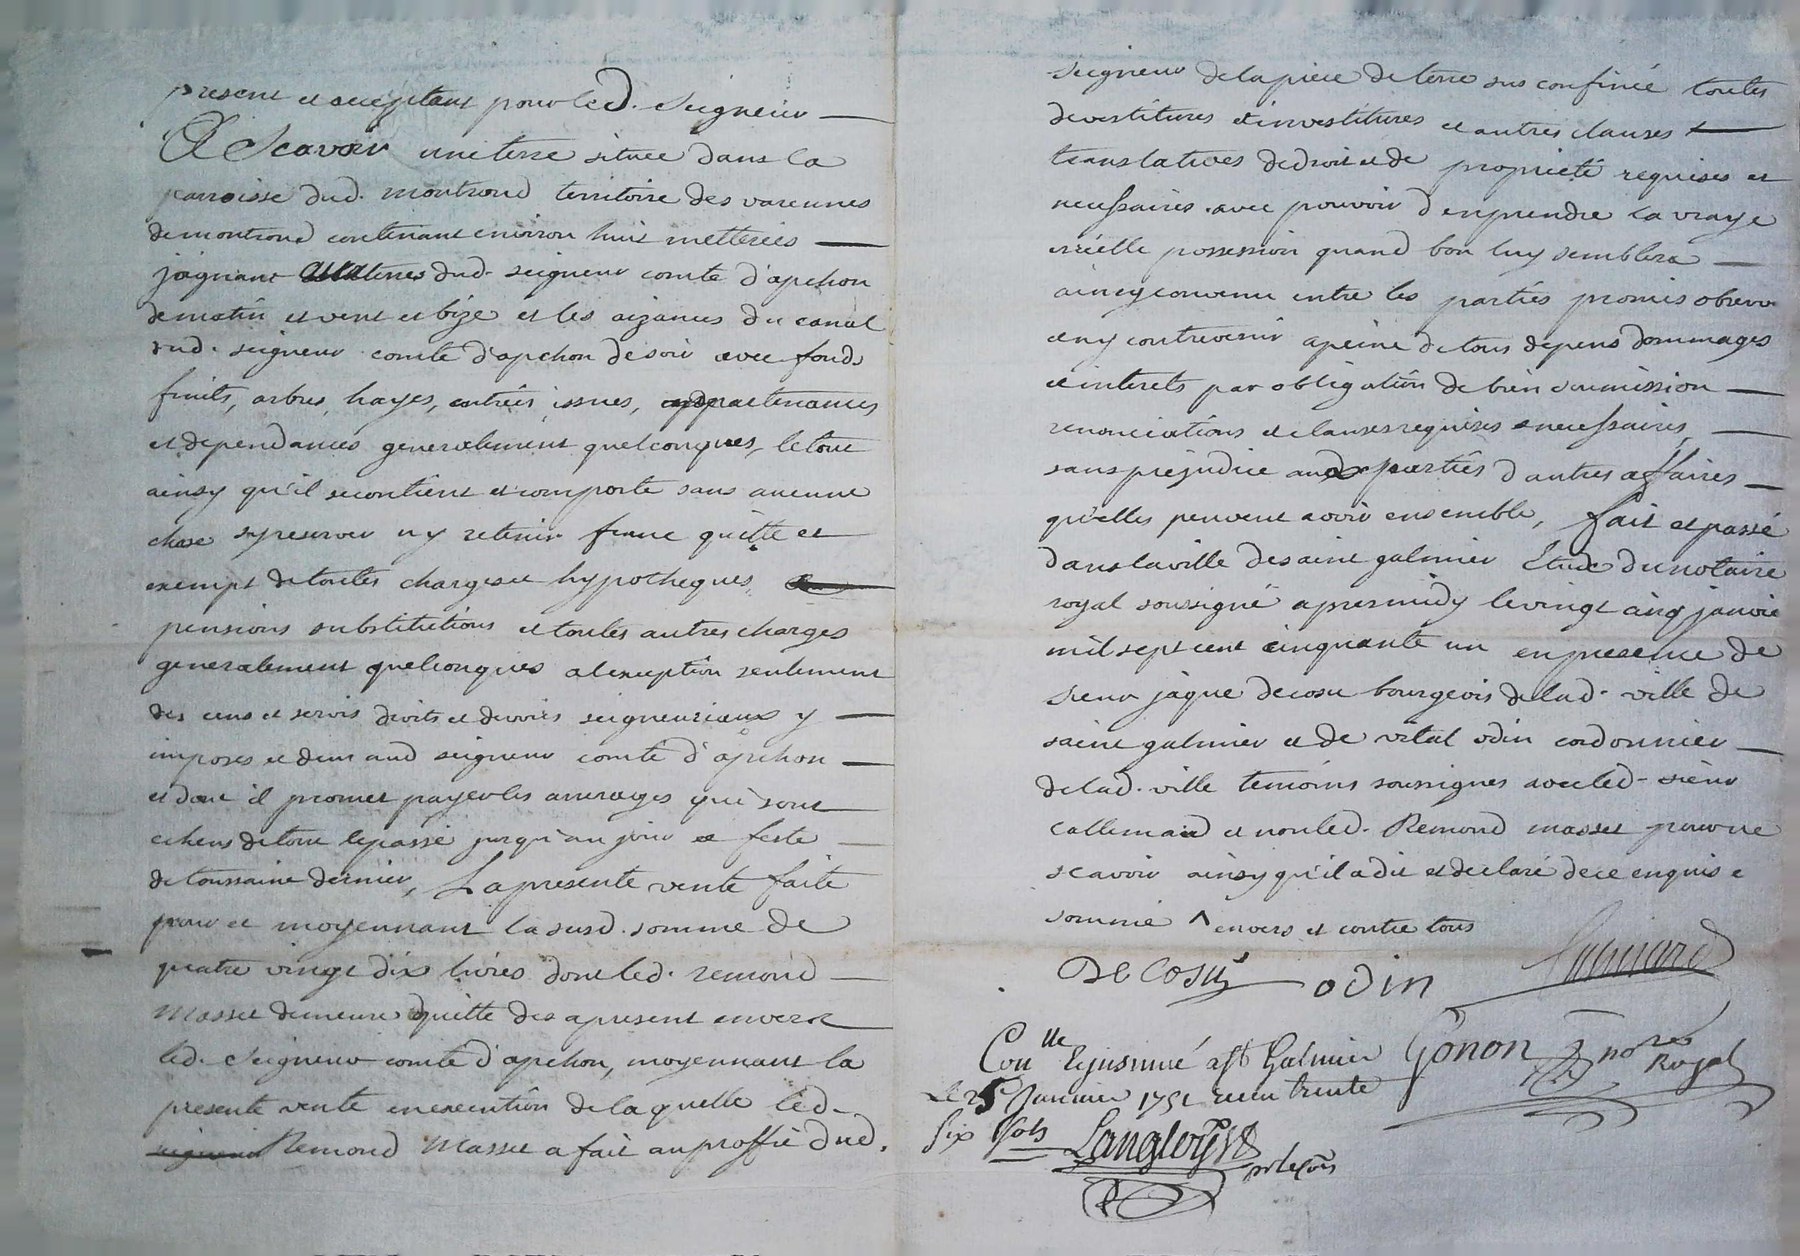 present et acceptant pour led. Seigneur
A Scavoir une terre située dans la
parroisse dud. montrond territoire des varennes
de montrond contenant environ huit metterées
joignant terres dud. seigneur comte d'apchon
de matin et vent et bize et les aizances du canal
dud. seigneur comte d'apchon de soir avec fonds
fruits, arbres, hayes, entrées issues, appartenances
et dependances generalement quelconques, le tout
ainsy qu'il se contient et comporte sans aucune
chose sy reserver ny retenir franc quitte et
exempt de toutes charges et hypotheques,
pensions substitutions et toutes autres charges
generalement quelconques a lexception seulement
des cens et servis droits et devoirs seigneuriaux y
imposes et deus aud seigneur comte d'apchon
et dont il promet payer les arrerages qui sont
echeus de tout le passé jusqu'au jour et feste
de toussaint dernier, La presente vente faite
pour et moyennant la susd. somme de
quatre vingt dix livres dont led. remond
Masset demeure quitte des apresent envers
led. Seigneur comte d'apchon, moyennant la
presente vente en execution de laquelle led.
seigneur Remond Masset a fait au proffit dud.
seigneur de la piece de terre sus confinée toutes
devestitures et investitures et autres clauses
translatives de droit et de proprieté requises et
necessaires avec pouvoir d'en prendre la vraye
et réelle possession quand bon luy semblera
ainsy convenu entre les parties promis observer
et ny contrevenir a peine de tous depens dommages
et interets par obligation de bien soumission
renonciations et clauses requises et necessaires
sans prejudice aud. parties d'autres affaires
qu'elles peuvent avoir ensemble, fait et passé
dans la ville de saint galmier Etude du notaire
royal soussigné apres midy le vingt cinq janvier
mil sept cent cinquante un en presence de
sieur jaque decosu bourgeois de lad. ville de
saint galmier et de vital odin cordonnier
de lad. ville temoins soussignes avec led. sieur
callemard et non led. Remond masset pour ne
scavoir ainsy qu'il a dit et declaré de ce enquis et
sommé ^ envers et contre tous
De Cosu odin
Conlle et insinué a st Galmier Gonon nore Royal
Le 25e Janvier 1751 receu trente
six sols Langloys